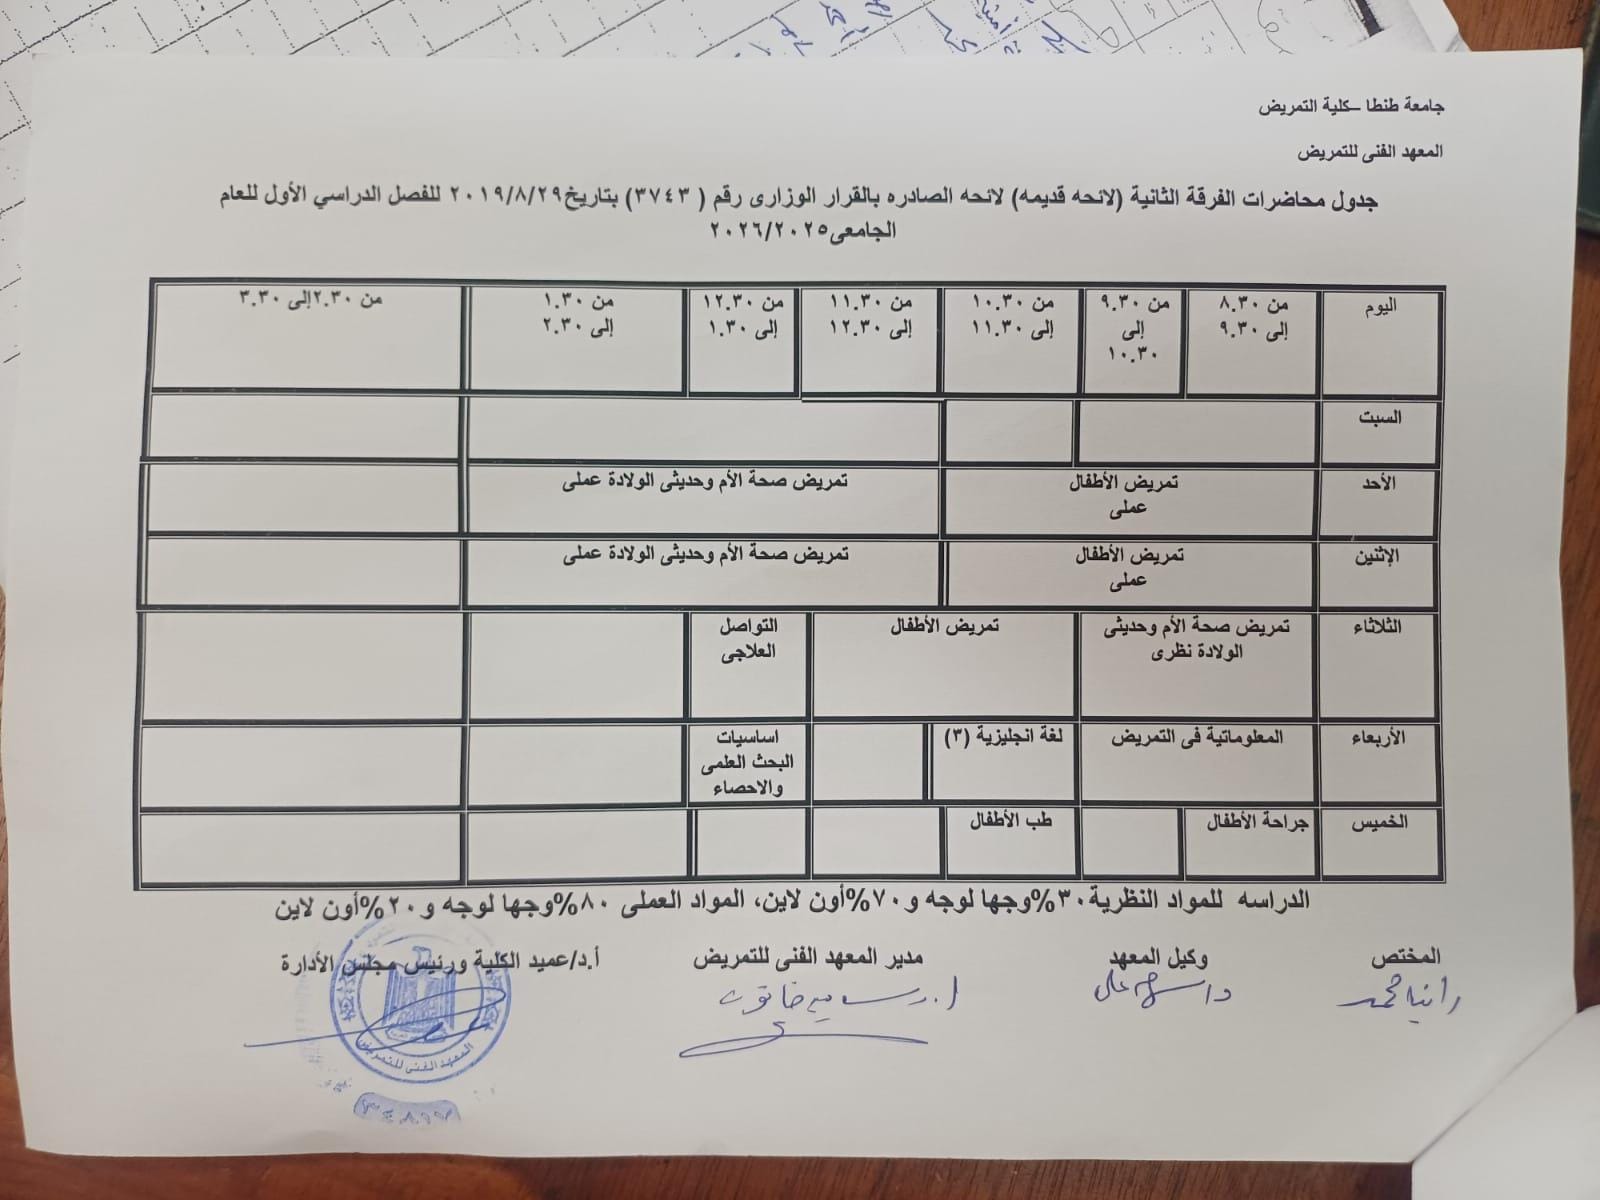 جامعة طنطا –كلية التمريض
المعهد الفنى للتمريض
جدول محاضرات الفرقة الثانية (لائحه قديمه) لائحه الصادره بالقرار الوزارى رقم ( ٣٧٤٣) بتاريخ٢٠١٩/٨/٢٩ للفصل الدراسي الأول للعام
الجامعى٢٠٢٦/٢٠٢٥
اليوم
من ٨.٣٠
إلى ٩.٣٠
من ٩.٣٠
إلى
١٠.٣٠
من ١٠.٣٠
إلى ١١.٣٠
من ١١.٣٠
إلى ١٢.٣٠
من ١٢.٣٠
إلى ١.٣٠
من ١.٣٠
إلى ٢.٣٠
من ٢.٣٠إلى ٣.٣٠
السبت
الأحد
تمريض الأطفال
عملى
تمريض صحة الأم وحديثى الولادة عملى
الإثنين
تمريض الأطفال
عملى
تمريض صحة الأم وحديثى الولادة عملى
الثلاثاء
تمريض صحة الأم وحديثى
الولادة نظرى
تمريض الأطفال
التواصل
العلاجى
الأربعاء
المعلوماتية فى التمريض
لغة انجليزية (٣)
اساسيات
البحث العلمى
والاحصاء
الخميس
جراحة الأطفال
طب الأطفال
الدراسه للمواد النظرية٣٠%وجها لوجه و٧٠%أون لاين، المواد العملى ٨٠%وجها لوجه و٢٠%أون لاين
المختص
وكيل المعهد
مدير المعهد الفنى للتمريض
أ.د/عميد الكلية ورئيس مجلس الأدارة
رانيا محمد
المعهد الفنى للتمريض